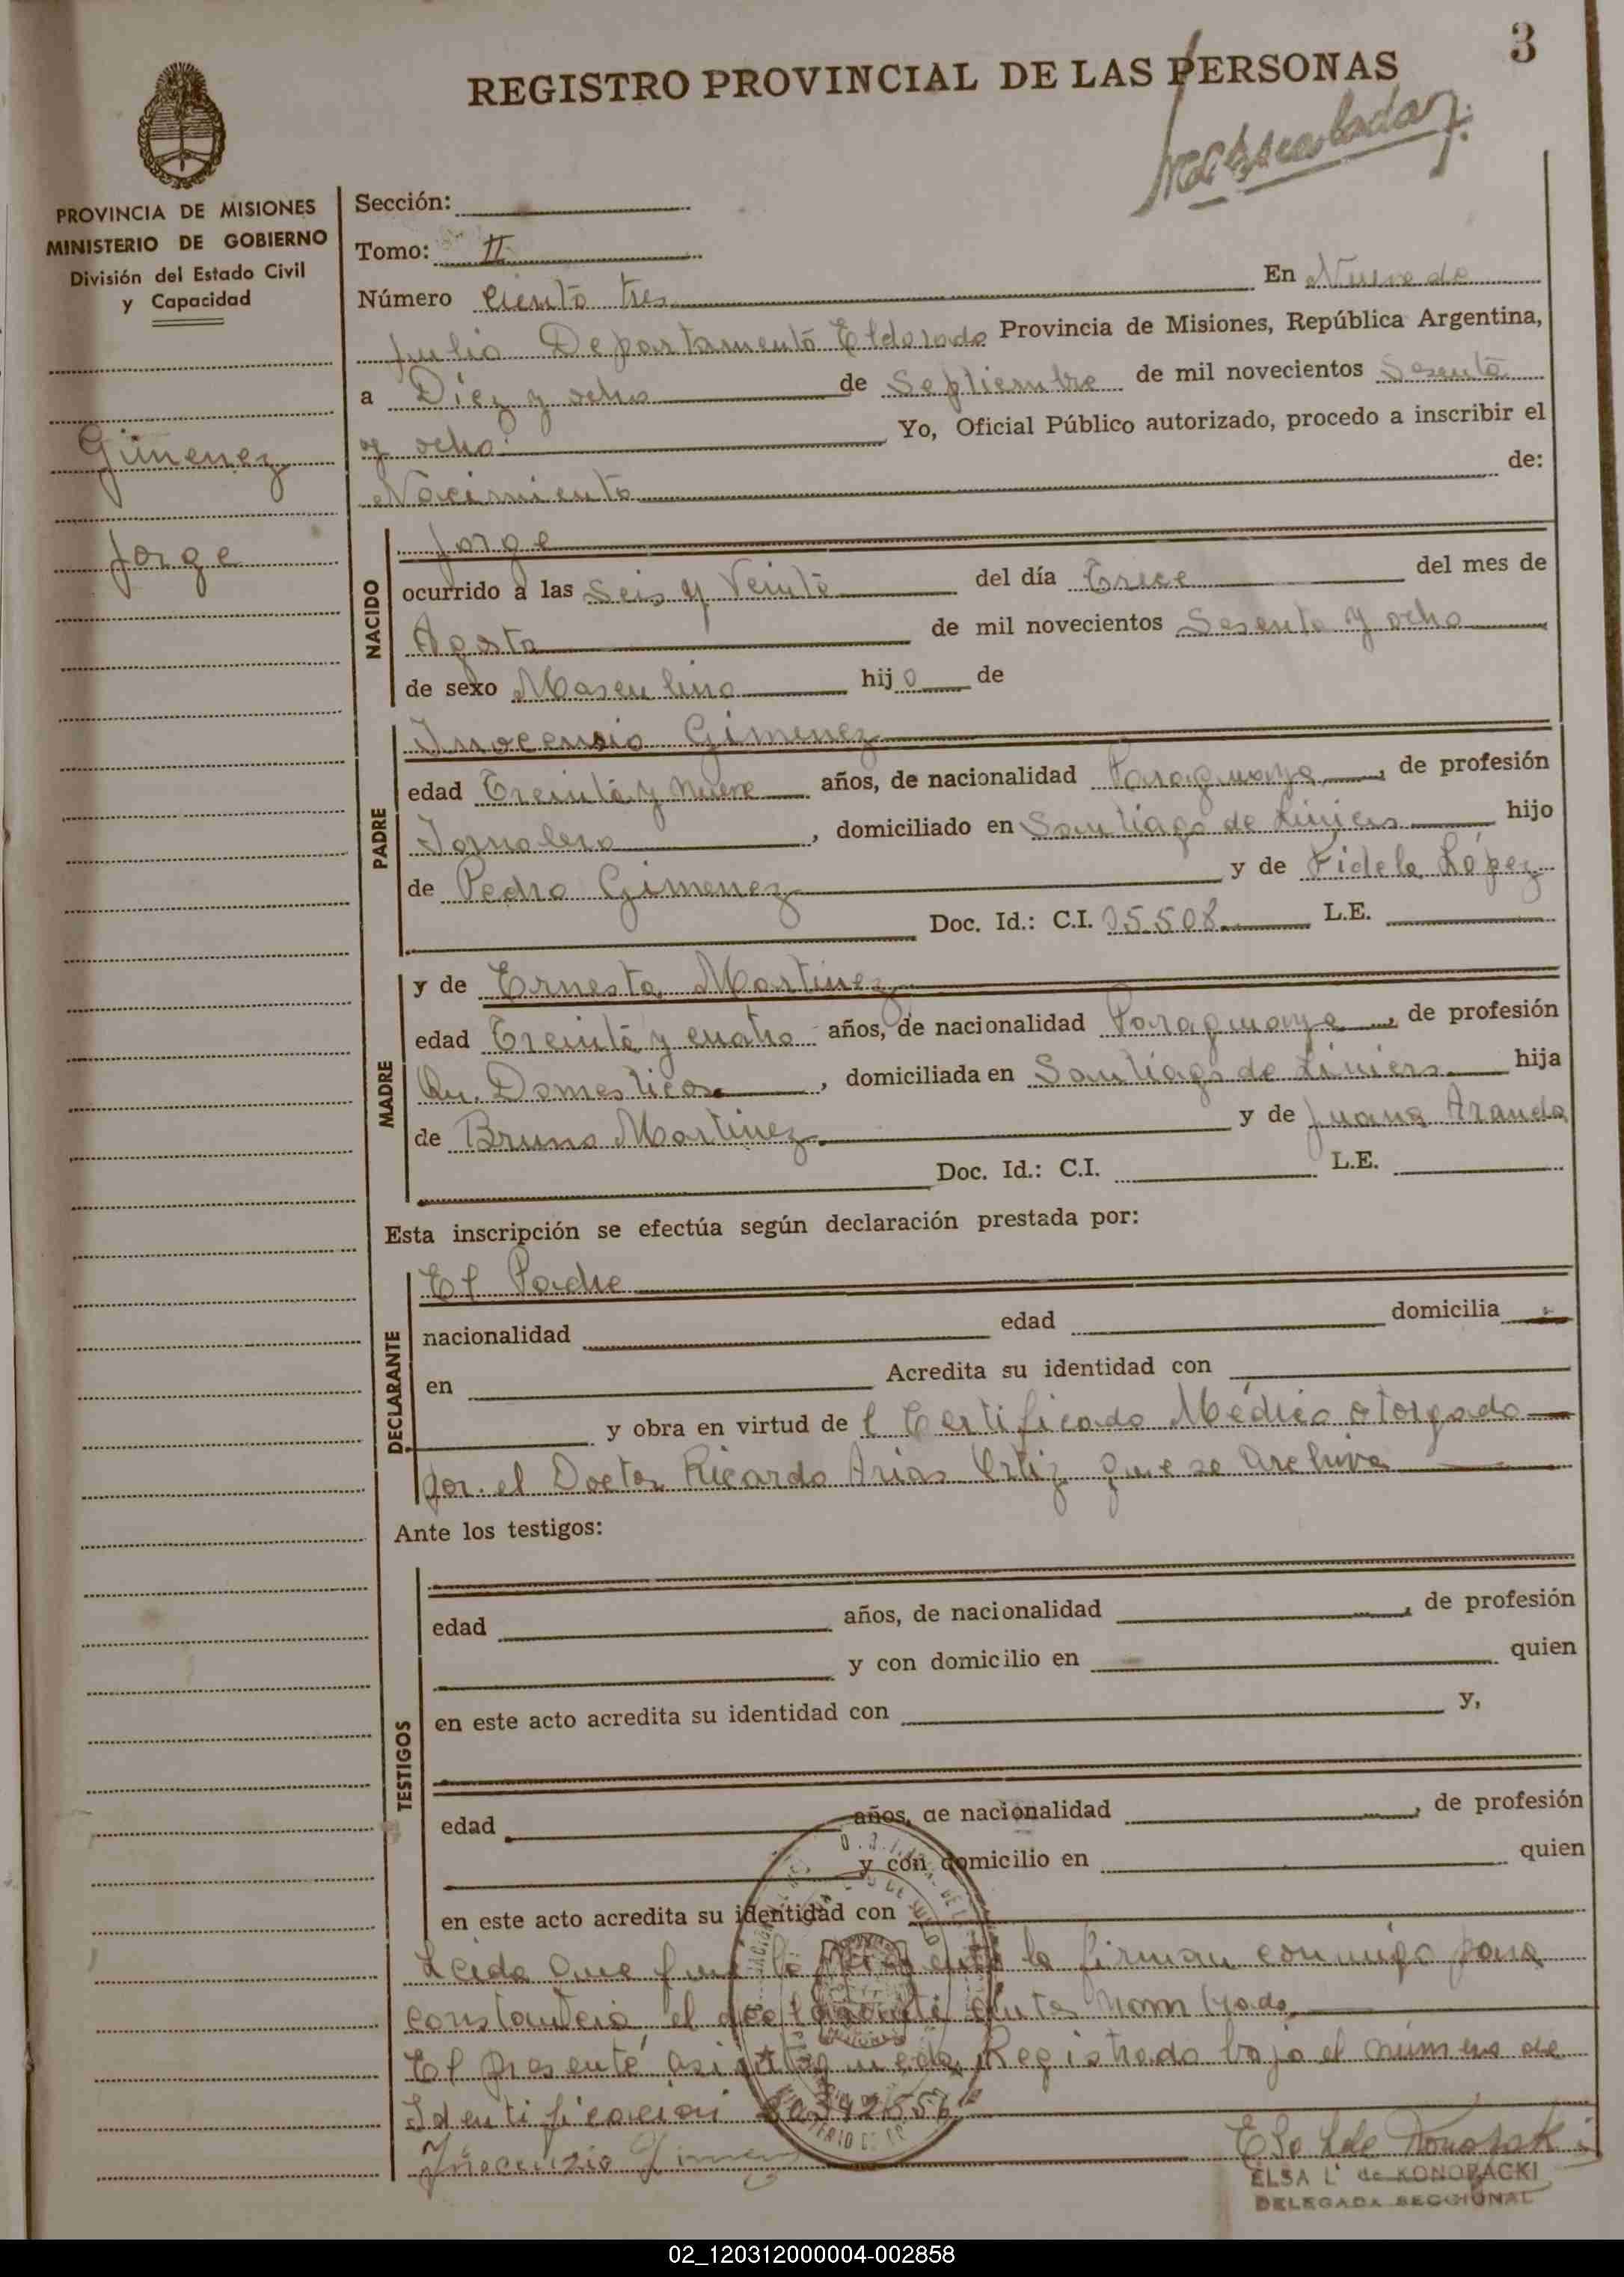 3
REGISTRO PROVINCIAL DE LAS PERSONAS
PROVINCIA DE MISIONES
MINISTERIO DE GOBIERNO
División del Estado Civil
y Capacidad
Gimenez
Jorge
Sección:
Tomo: II
Número Ciento tres En Nueve de
Julio Departamento Eldorado Provincia de Misiones, República Argentina,
a Diez y ocho de Septiembre de mil novecientos Sesenta
y ocho. Yo, Oficial Público autorizado, procedo a inscribir el
Nacimiento de:
NACIDO
Jorge
ocurrido a las Seis y Veinte del día Trece del mes de
Agosto de mil novecientos Sesenta y ocho
de sexo Masculino hijo de
PADRE
Inocencio Gimenez
edad Treinta y nueve años, de nacionalidad Paraguaya, de profesión
Jornalero, domiciliado en Santiago de Liniers hijo
de Pedro Gimenez y de Fidela López
Doc. Id.: C.I. 05.508 L.E.
MADRE
y de Ernesta Martinez
edad Treinta y cuatro años, de nacionalidad Paraguaya, de profesión
Qu. Domesticos, domiciliada en Santiago de Liniers hija
de Bruno Martinez y de Juana Aranda
Doc. Id.: C.I. L.E.
Esta inscripción se efectúa según declaración prestada por:
DECLARANTE
El Padre
nacionalidad edad domicilia
en Acredita su identidad con
y obra en virtud de l Certificado Médico otorgado
por el Doctor Ricardo Arias Ortiz que se archiva
Ante los testigos:
TESTIGOS
edad años, de nacionalidad , de profesión
y con domicilio en quien
en este acto acredita su identidad con y,
edad años, de nacionalidad , de profesión
y con domicilio en quien
en este acto acredita su identidad con
Leida que fue la presente la firman conmigo para
constancia, el declarante antes nombrado
El presente asiento queda Registrado bajo el número de
Identificación
Inocenzio Jimenez
ELSA L. de KONOPACKI
DELEGADA SECCIONAL
02_120312000004-002858